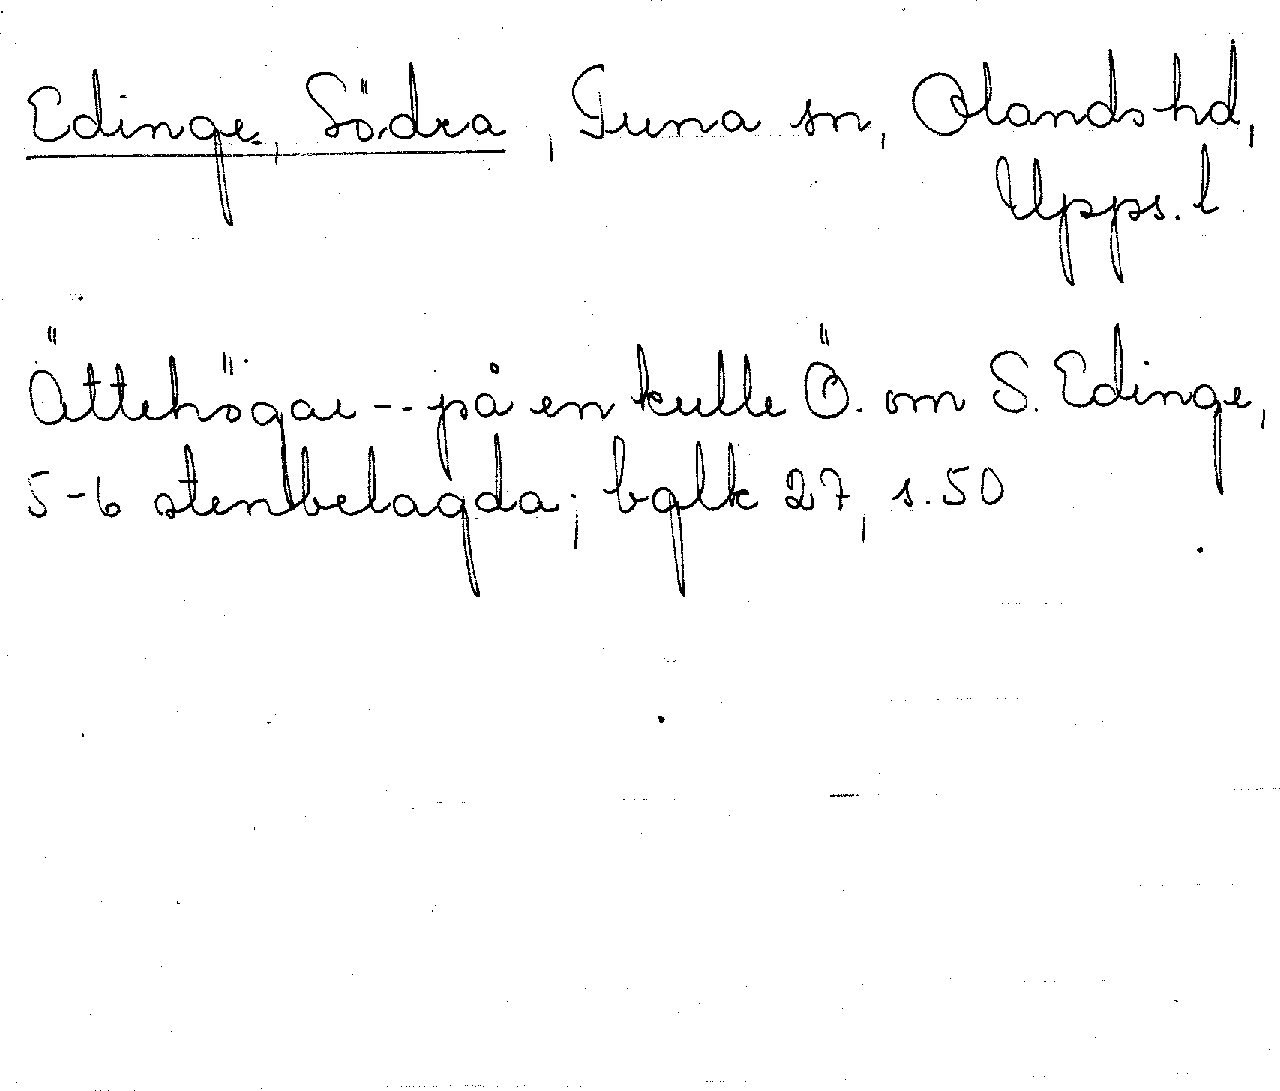 Edinge, Södra, Tuna sn, Olands hd,
Upps. l
Ättehögar -- på en kulle Ö. om S. Edinge,
5-6 stenbelagda; bglk 27, s. 50